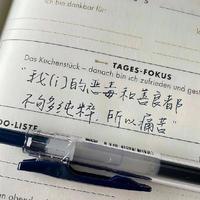 ich bin dankbar für:
TAGES-FOKUS
Das Kuchenstück – danach bin ich zufrieden und gest
“我(们)的恶毒和善良都
不够纯粹,所以痛苦”
DO-LISTE